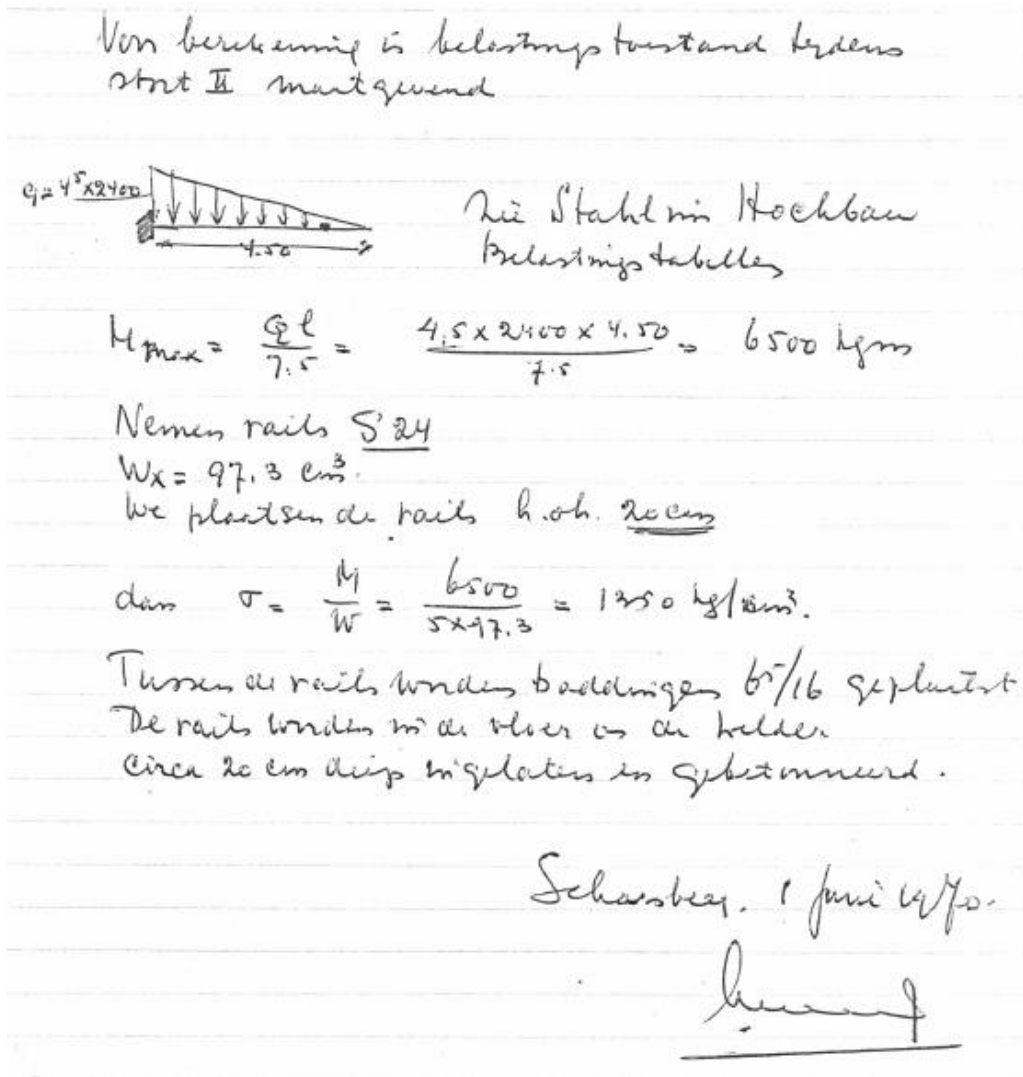 Voor berekening is belastingstoestand tydens
stort II maatgevend
q = 4⁵ x 2400
4.50
Zie Stahl im Hochbau
Belastingstabellen
M max = Ql / 7.5 = 4,5 x 2400 x 4.50 / 7.5 = 6500 kgm
Nemen rails S 24
Wx = 97,3 cm³.
We plaatsen de rails h.oh. 20 cm
dan σ = M / W = 6500 / 5 x 97.3 = 1350 kg/cm³.
Tussen de rails worden baddingen 6⁵/16 geplaatst
De rails worden in de vloer van de kelder
circa 20 cm diep ingelaten en gebetonneerd.
1 juni 1970.